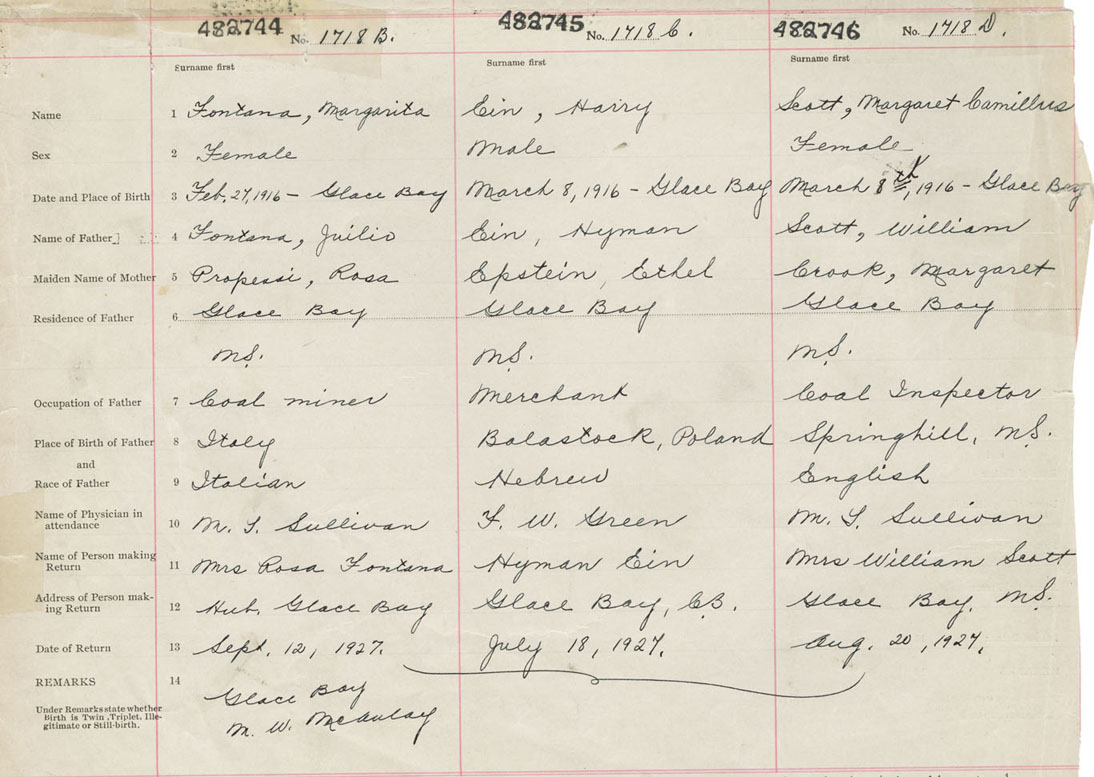 482744 No. 1718 B. 482745 No. 1718 C. 482746 No. 1718 D.
Surname first Surname first Surname first
Name 1 Fontana, Margarita Ein, Harry Scott, Margaret Camillus
Sex 2 Female Male Female
Date and Place of Birth 3 Feb. 27, 1916 - Glace Bay March 8, 1916 - Glace Bay March 8th, 1916 - Glace Bay
Name of Father 4 Fontana, Juilio Ein, Hyman Scott, William
Maiden Name of Mother 5 Propersi, Rosa Epstein, Ethel Crook, Margaret
Residence of Father 6 Glace Bay Glace Bay Glace Bay
N.S. N.S. N.S.
Occupation of Father 7 Coal miner Merchant Coal Inspector
Place of Birth of Father 8 Italy Balastock, Poland Springhill, N.S.
and
Race of Father 9 Italian Hebrew English
Name of Physician in
attendance 10 M. T. Sullivan F. W. Green M. T. Sullivan
Name of Person making
Return 11 Mrs Rosa Fontana Hyman Ein Mrs William Scott
Address of Person mak-
ing Return 12 Hub, Glace Bay Glace Bay, C.B. Glace Bay, N.S.
Date of Return 13 Sept. 12, 1927. July 18, 1927. Aug. 20, 1927.
REMARKS 14 Glace Bay
Under Remarks state whether
Birth is Twin, Triplet, Ille-
gitimate or Still-birth.
M. W. McAulay